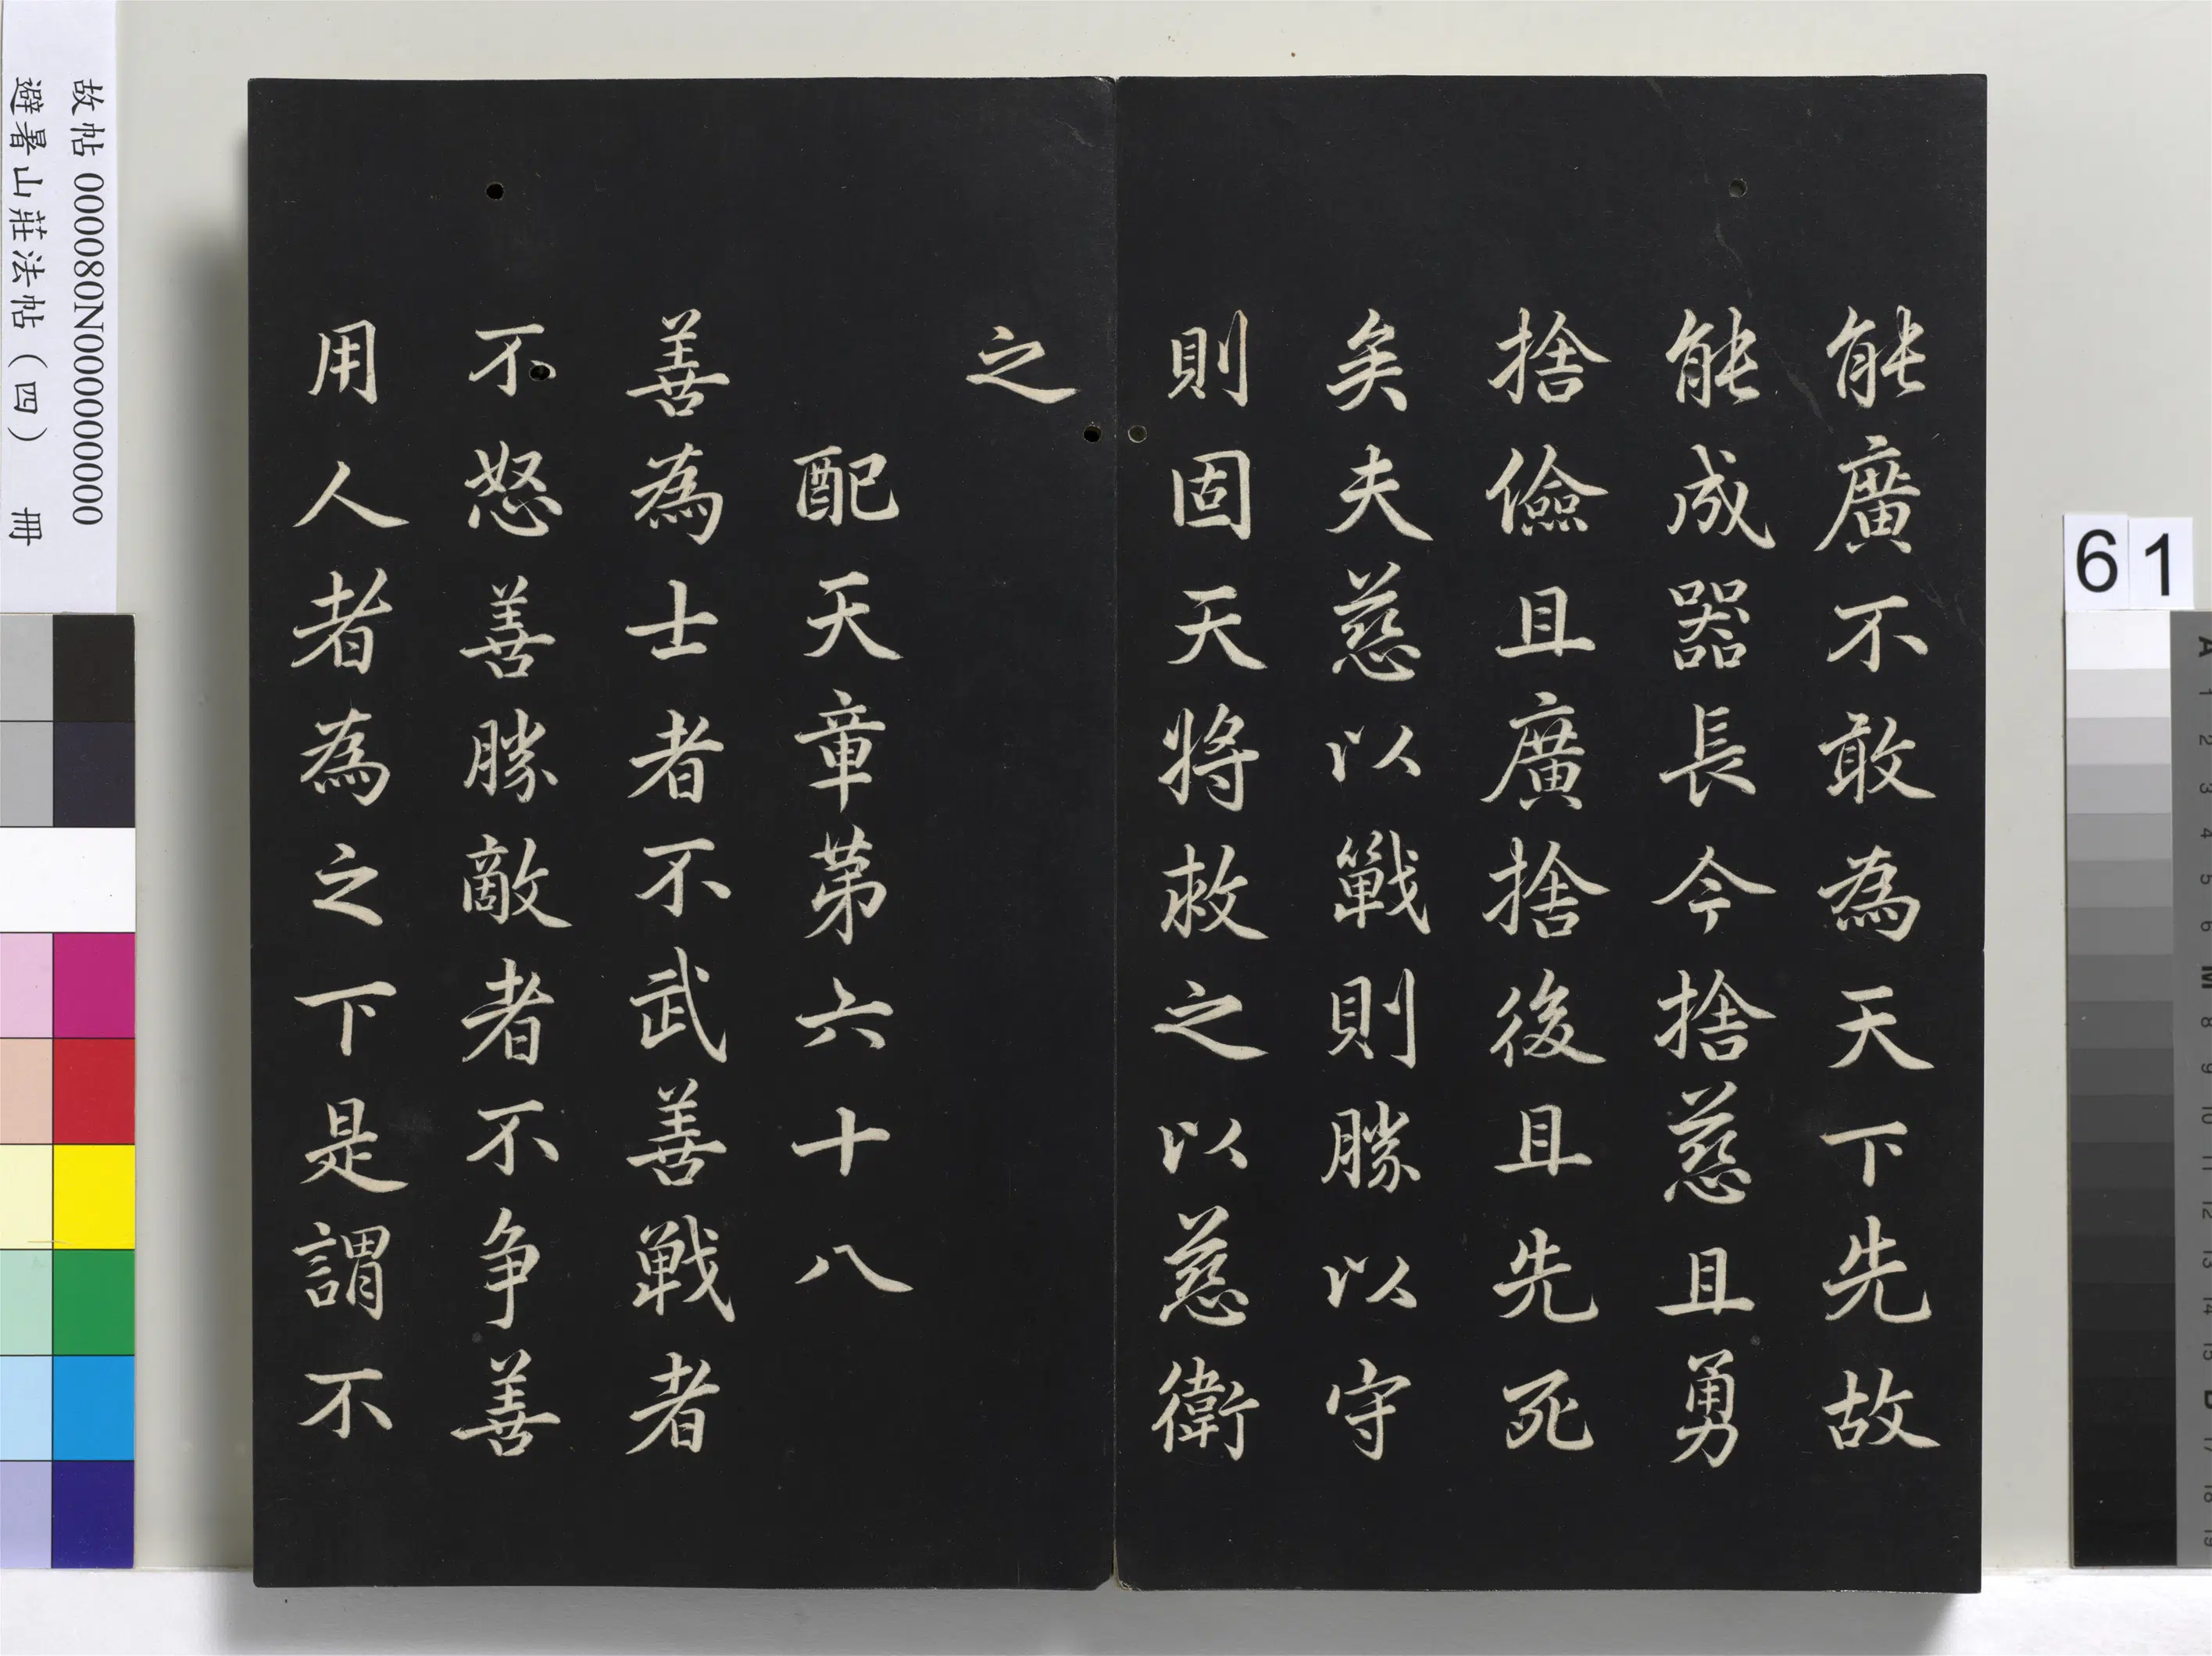 能廣不敢為天下先故
能成器長今捨慈且勇
捨儉且廣捨後且先死
矣夫慈以戰則勝以守
則固天將救之以慈衛
之
配天章第六十八
善為士者不武善戰者
不怒善勝敵者不争善
用人者為之下是謂不
故帖 000080N000000000
避暑山莊法帖（四） 冊
61
A 1 2 3 4 5 6 M 8 9 10 11 12 13 14 15 B 17 18 19